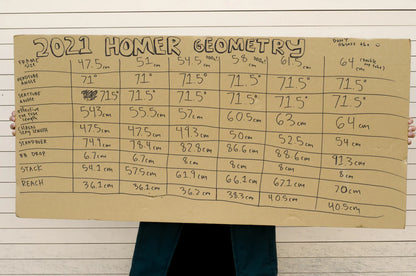 2021 HOMER GEOMETRY
FRAME SIZE 47.5cm 51 cm 54.5 cm 58 cm 61.5 cm 64
HEADTUBE ANGLE 71° 71° 71.5° 71.5° 71.5° 71.5°
SEATTUBE ANGLE 71.5° 71.5° 71.5° 71.5° 71.5° 71.5°
EFFECTIVE TOP TUBE LENGTH 543 55.5cm 57cm 60.5cm 63cm 64 cm
CHAIN STAY LENGTH 47.5cm 47.5cm 49.3cm 50cm 52.5cm 54 cm
STANDOVER 74.9 78.4cm 82.8cm 86.6cm 88.6cm 91.3cm
BB DROP 6.7cm 6.7cm 8cm 8cm 8cm 8cm
STACK 54.1cm 57.5cm 61.9cm 66.1cm 67.1cm 70cm
REACH 36.1cm 36.1cm 36.2cm 38.3cm 40.5cm 40.5cm